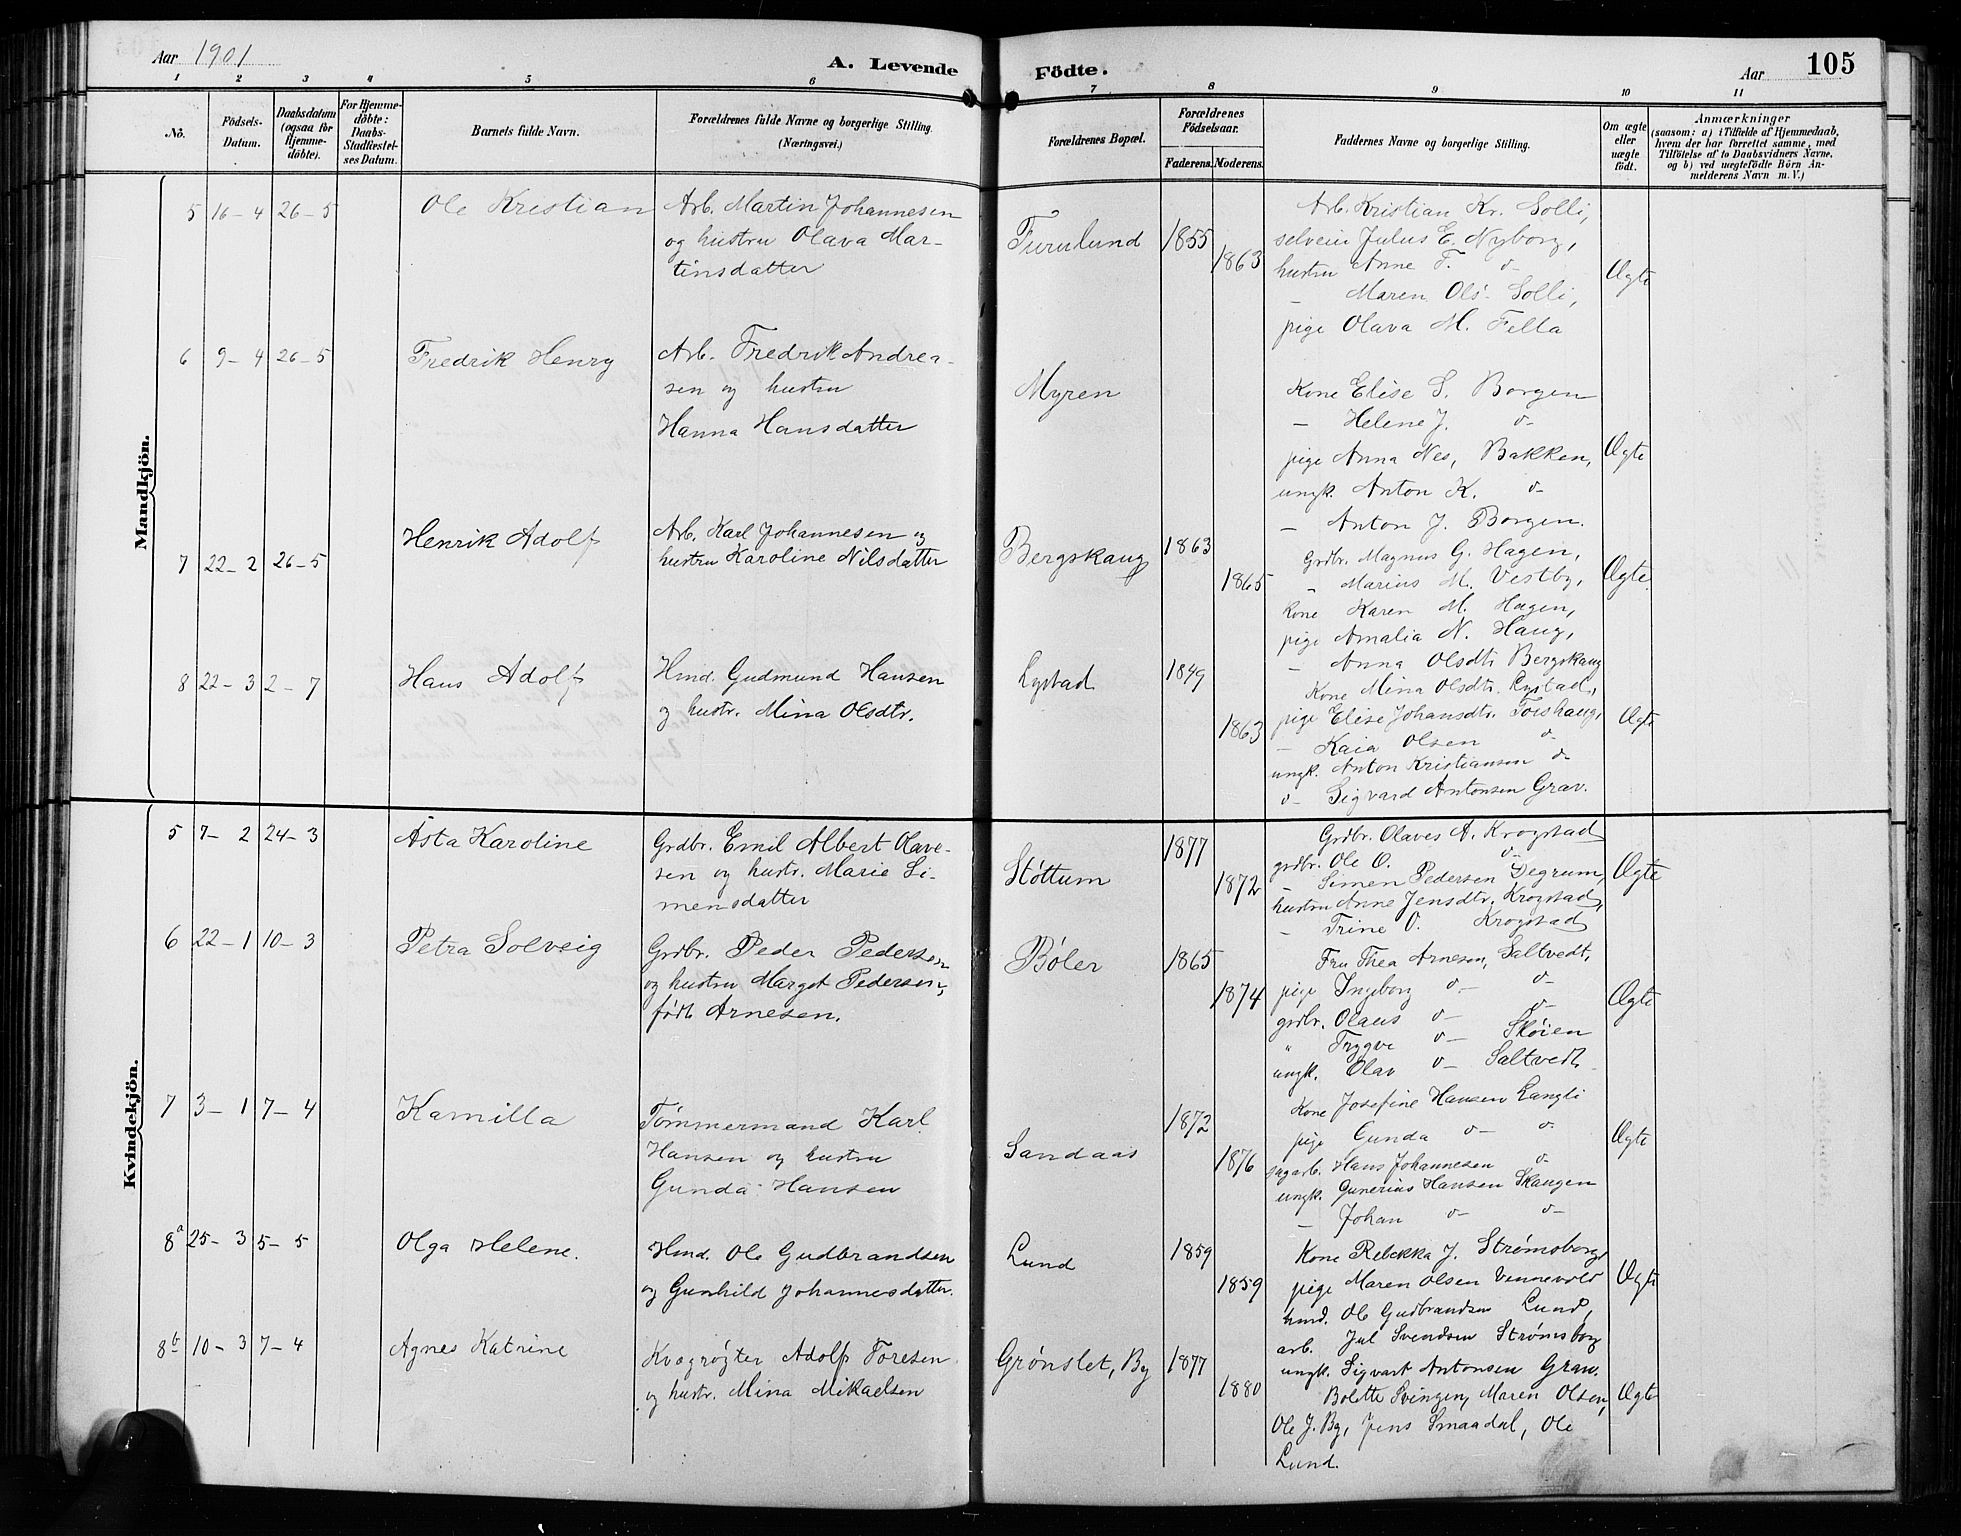 Aar 1901
A. Levende
Födte.
Aar
105
1 2 3 4 5 6 7 8 9 10 11
Nô.
Födsels-
Datum.
Daabsdatum
(ogsaa for
Hjemme-
döbte).
For Hjemme-
döbte:
Daabs-
Stadfæstel-
ses Datum.
Barnets fulde Navn.
Forældrenes fulde Navne og borgerlige Stilling.
(Næringsvei.)
Forældrenes Bopæl.
Forældrenes
Födselsaar.
Faderens.
Moderens.
Faddernes Navne og borgerlige Stilling.
Om ægte
eller
uægte
födt.
Anmærkninger
(saasom: a) i Tilfælde af Hjemmedaab,
hvem der har forrettet samme, med
Tilföielse af to Daabsvidners Navne,
og b) ved uægtefödte Börn An-
melderens Navn m. V.)
Mandkjön.
5 16-4 26-5 Ole Kristian
Arb. Martin Johannesen
og hustru Olava Mar-
tinsdatter
Furulund 1855 1863
Arb. Kristian Kr. Solli,
selveier Julus E. Nyborg,
hustru Anne T. d-
- Maren Ols- Solli,
pige Olava M. Fella
Ægte
6 9-4 26-5 Fredrik Henry
Arb. Fredrik Andrea-
sen og hustru
Hanna Hansdatter
Myren
Kone Elise S. Borgen
- Helene J. d-
pige Anna Nes, Bakken,
ungk. Anton K. d-
- Anton J. Borgen.
Ægte
7 22-2 26-5 Henrik Adolf
Arb. Karl Johannesen og
hustru Karoline Nilsdatter
Bergskaug 1863 1865
Grdbr. Magnus G. Hagen,
" Marius M. Vestby,
Kone Karen M. Hagen,
pige Amalia N. Haug,
- Anna Olsdtr Bergskaug
Ægte
8 22-3 2-7 Hans Adolf
Hmd. Gudmund Hansen
og hustr. Mina Olsdtr.
Lystad 1849 1863
Kone Mina Olsdtr. Lystad,
pige Elise Johansdtr. Toshaug,
- Kaia Olsen d-
ungk. Anton Kristiansen d-
d- Sigvard Antonsen Grav.
Ægte
Kvindekjön.
5 7-2 24-3 Asta Karoline
Grdbr. Emil Albert Olave-
sen og hustr. Marie Si-
mensdatter
Støttum 1877 1872
Grdbr. Olaves A. Krogstad
grdbr. Ole O. d-
- Simen Pedersen Degrum,
hustru Anne Jensdtr. Krogstad,
- Trine O. Krogstad
Ægte
6 22-1 10-3 Petra Solveig
Grdbr. Peder Pedersen
og hustru Margot Pedersen,
født Arnesen.
Bøler 1865 1874
Fru Thea Arnesen, Saltvedt,
pige Ingeborg d- d-
grdbr. Olaus d- d-
" Trygve d- Skøien
ungk. Olav d- Saltvedt
Ægte
7 3-1 7-4 Kamilla
Tømmermand Karl
Hansen og hustru
Gunda Hansen
Sandaas 1872 1876
Kone Josefine Hansen Langli
pige Gunda d- d-
sagarb. Hans Johannesen d-
ungk. Gunerius Hansen Skaugen
- Johan d- d-
Ægte
8a 25-3 5-5 Olga Helene.
Hmd. Ole Gudbrandsen
og Gunhild Johannesdatter.
Lund 1859 1859
Kone Rebekka J. Strømsborg,
pige Maren Olsen Vennevold
hmd. Ole Gudbrandsen Lund,
arb. Jul Svendsen Strømsborg
ungk. Sigvart Antonsen Grav.
Ægte
8b 10-3 7-4 Agnes Katrine
Kvægrøgter Adolf Toresen
og hustr. Mina Mikaelsen
Grønslet, By 1877 1880
Bolette Svingen, Maren Olsen,
Ole J. By, Jens Smaadal, Ole
Lund.
Ægte